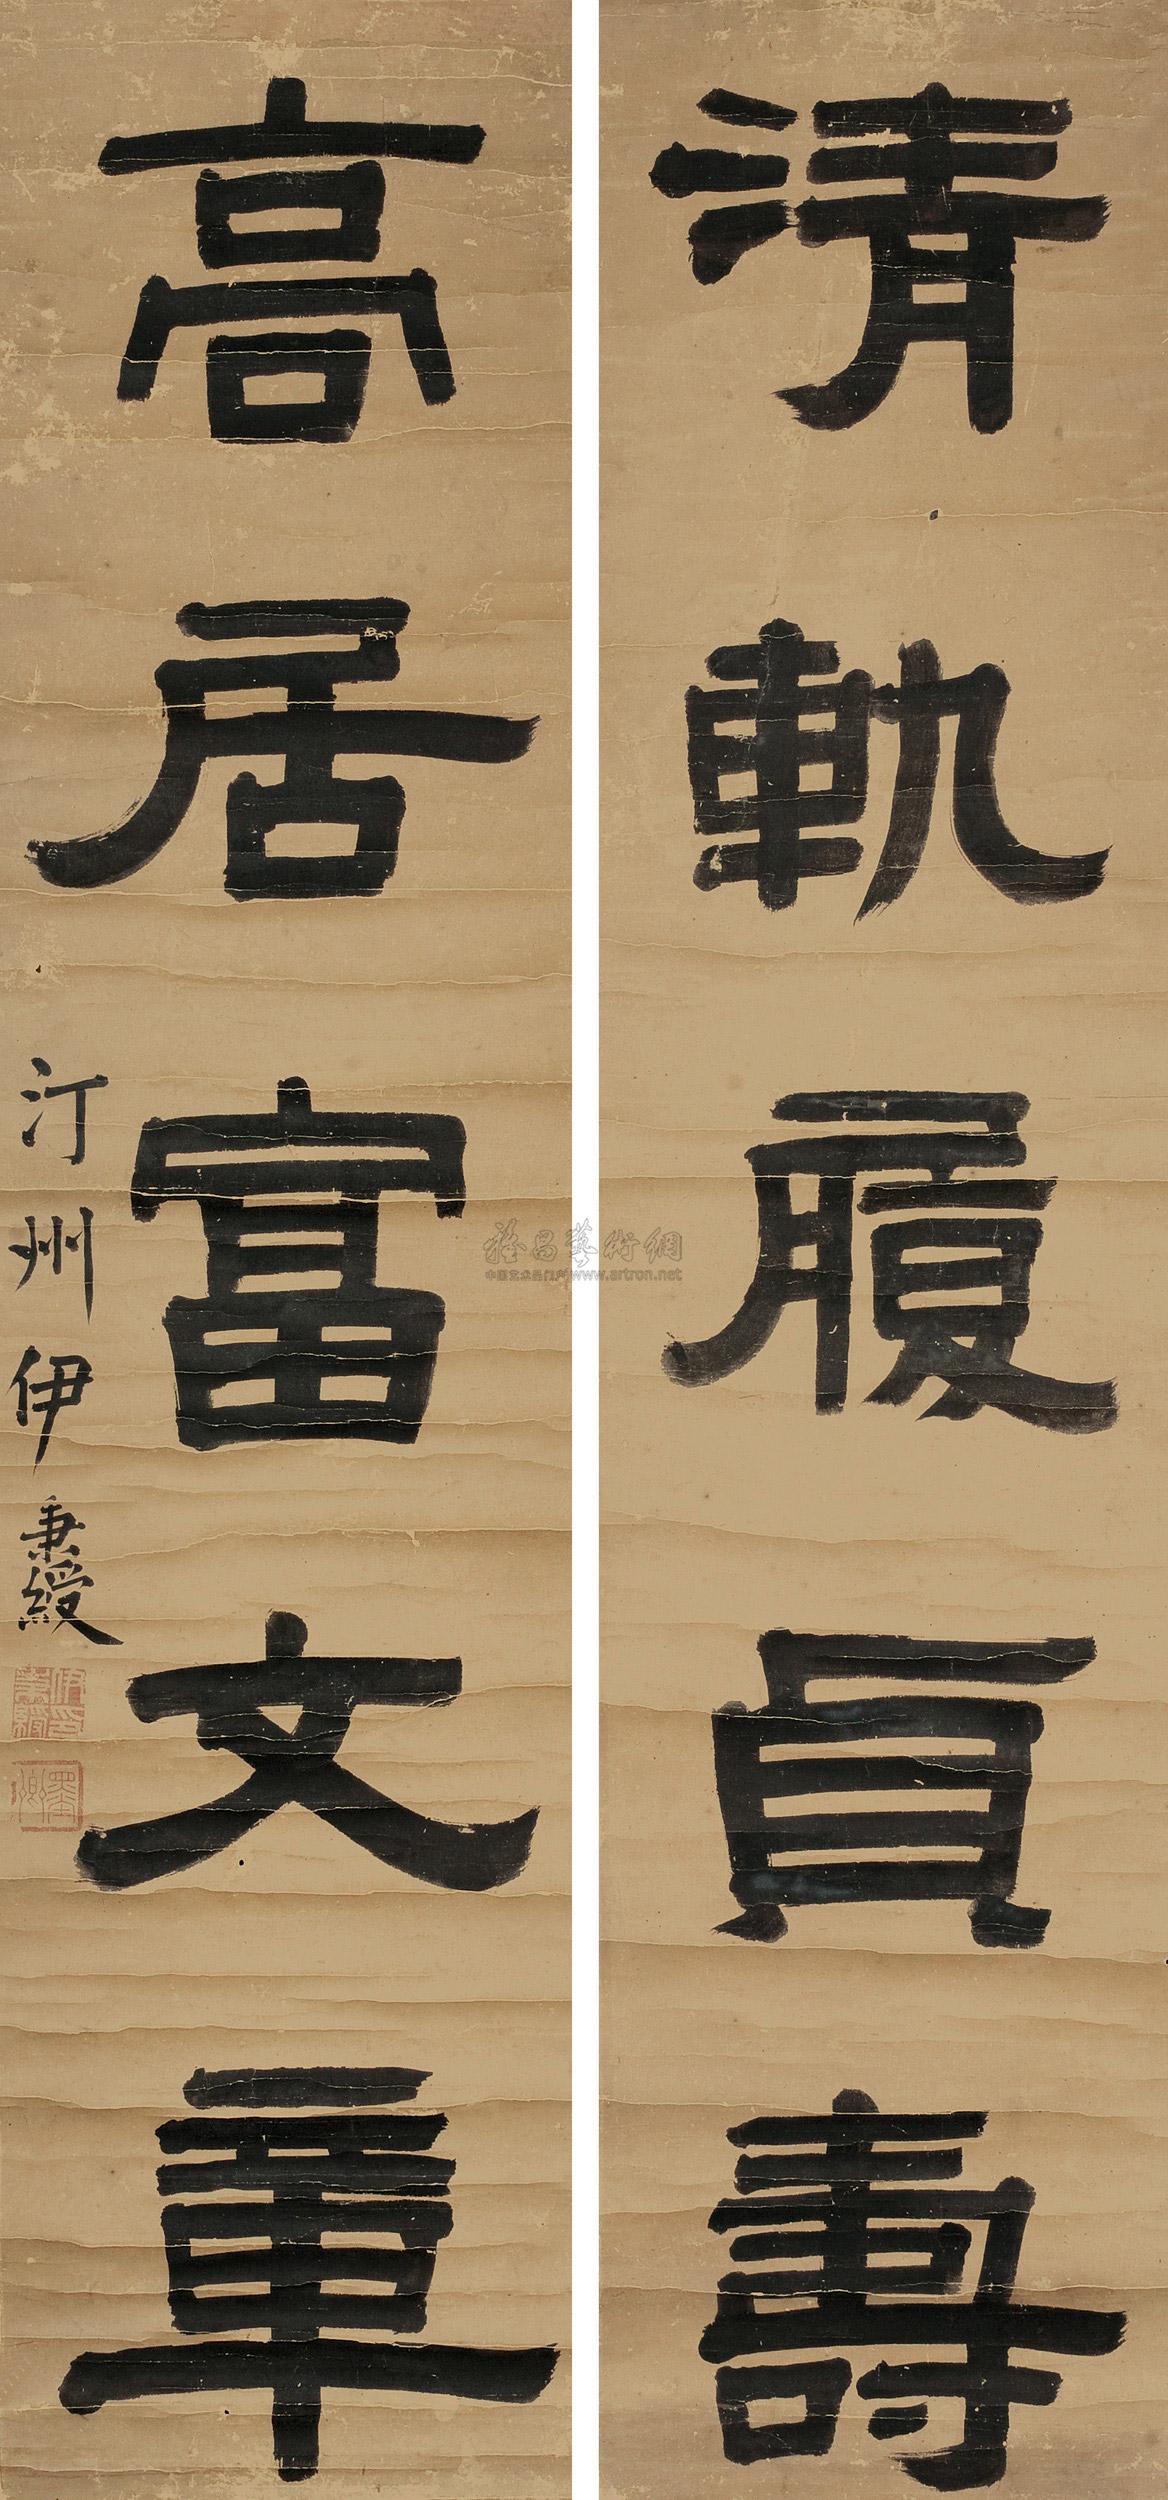 清軌履貞壽
高居富文章
汀州伊秉綬
伊秉綬印
墨卿
雅昌藝術網
中国艺术品门户www.artron.net